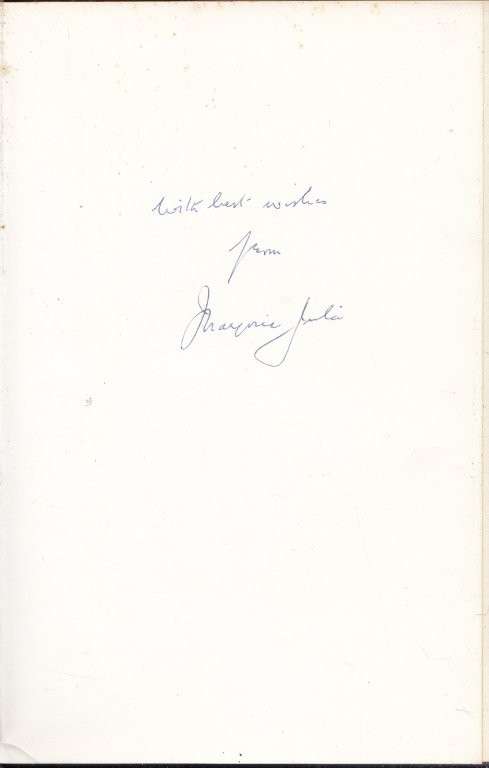 With best wishes
from
Marjorie Julia